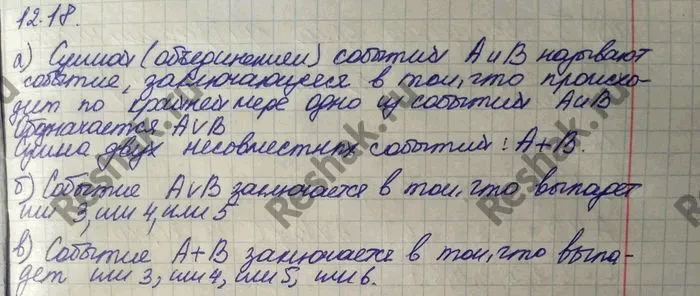 12.18.
а) Суммой (объединением) событий А и В называют
событие, заключающееся в том, что происхо-
дит по крайней мере одно из событий А и В
Обозначается A∨B
Сумма двух несовместных событий: A+B.
б) Событие A∨B заключается в том, что выпадет
или 3, или 4, или 5
в) Событие A+B заключается в том, что выпа-
дет или 3, или 4, или 5, или 6.
Reshak.ru
Reshak.ru
Reshak.ru